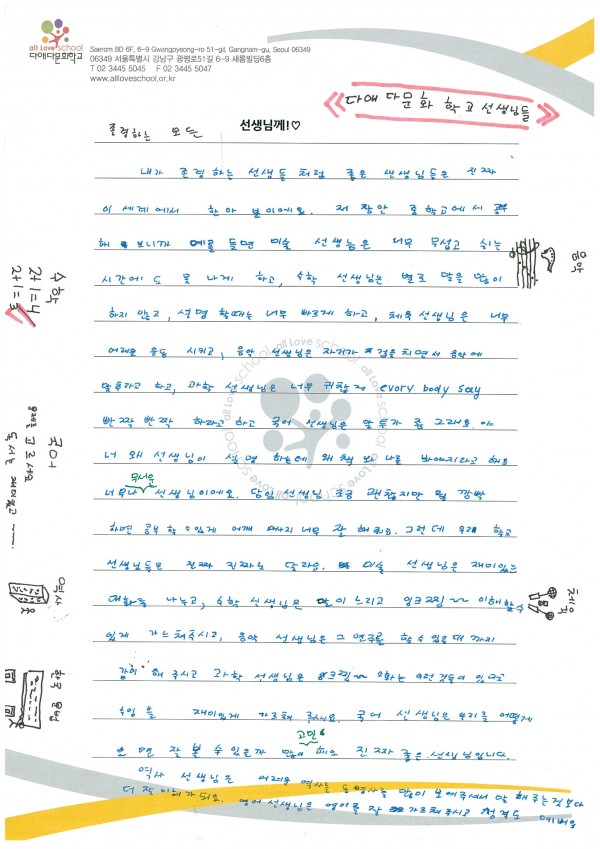 all Love school
다애다문화학교
Saerom BD 6F, 6-9 Gwangpyeong-ro 51-gil, Gangnam-gu, Seoul 06349
06349 서울특별시 강남구 광평로51길 6-9 새롬빌딩6층
T 02 3445 5045 F 02 3445 5047
www.allloveschool.or.kr
다애 다문화 학교 선생님들
존경하는 모든 선생님께!♡
내가 존경하는 선생들 처럼 좋은 샌생님들은 진짜
이 세계에서 한아 뿐이에요. 저 잠깐 중학교에서 공부
해 보니까 예를 듯면 미술 선생늠은 너무 무섭고 쉬는
시간에도 못 나게 하고, 수학 선생님은 별로 말을 많이
하지 않고, 설명 할때는 너무 빠르게 하고, 체육 선생님은 너무
어려운 운동 시키고, 음악 선생님은 자기가 치면서 음악에
맞추라고 하고, 과학 선생님은 너무 귀찮게 every body say
반짝 반짝 하라고 하고 국어 선생님은 말투가 좀 그래요. 야
너 왜 선생님이 설명 하는데 왜 책 봐 나를 봐야지라고 해요
너무나 무서운 선생님이에요. 담임 선생님 조금 괜찮지만 뭘 깜빡
하면 공부 할 수 있게 너무 잘 해줘요. 그런데 우리 학교
선생님들은 진짜 진짜로 달라요. 미술 선생님은 재미있는
대화를 나누고, 수학 선생님은 말이 느리고 이해할수
있게 가르쳐주시고, 음악 선생님은 그 연주를 할 수 있을 때 까지
같이 해 주시고 과학 선생님은 이런 것들이 있다고
수업을 재미있게 가르쳐 주세요. 국어 선생님은 우리를 어떻게
하면 잘 볼 수 있을까 많이 고민 해요 진짜 좋은 선생님입니다.
역사 선생님은 어려운 역사는 동영상을 많이 보여주셔서 말 해 주는것 보다
더 잘 이해가 되요. 영어 선생님은 영어를 잘 가르쳐주시고 성격도 예뻐요
수학
2+1=4
2+1=3
국어
고르세요
독서는 재미있고
역사
한국 문화
음악
체육
all Love school